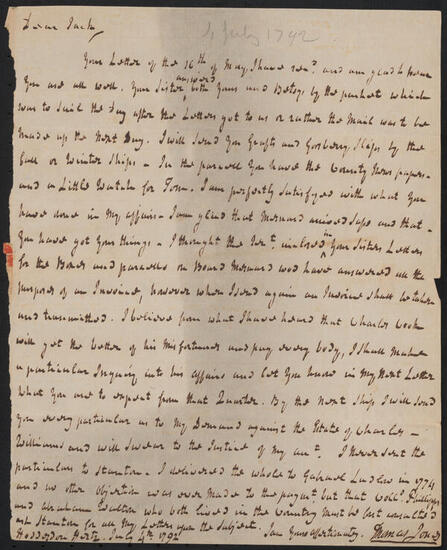 4 July 1792
Dear Jack,
Your Letter of the 16th of May, I have recd. and am glad to hear
You are all well. Your Sister answered both Yours and Betsy's by the packet which
was to Sail the day after the Letters got to us or rather the Mail was to be
made up the next Day. I will send You Grafts and Goosberry Slips by the
Fall or Winter Ships - In the parcell You have the County News papers
and a Little Watch for Tom. I am perfectly Satisfyed with what You
have done in my affairs - I am glad that Mermaid arrived safe and that
You have got Your things - I thought the inclosed in Your Sisters Letters
for the Boxes and parcells on Board Mermaid wod have answered all the
purposes of an Invoice, however when I send again an Invoice shall be taken
and transmitted. I believe from what I have heard that Charles Cook
will get the better of his Misfortunes and pay every body, I shall make
a particular Inquiry into his affairs and let You know in My Next Letter
What You are to expect from that Quarter. By the Next Ship I will send
You every particular as to My Demand against the Estate of Charles
Williams and will Swear to the Justice of my acct. I never sent the
particulars to Staunton. I delivered the whole to Gabriel Ludlow in 1774
and no other Objection was ever made to the paymt. but that Colo. Phillips
and Abraham who both lived in the Country must be first consulted
ask Staunton for all My Letters upon the Subject. I am Yours affectionately. Thomas Jones
Hoddesdon Herts. July 4th. 1792